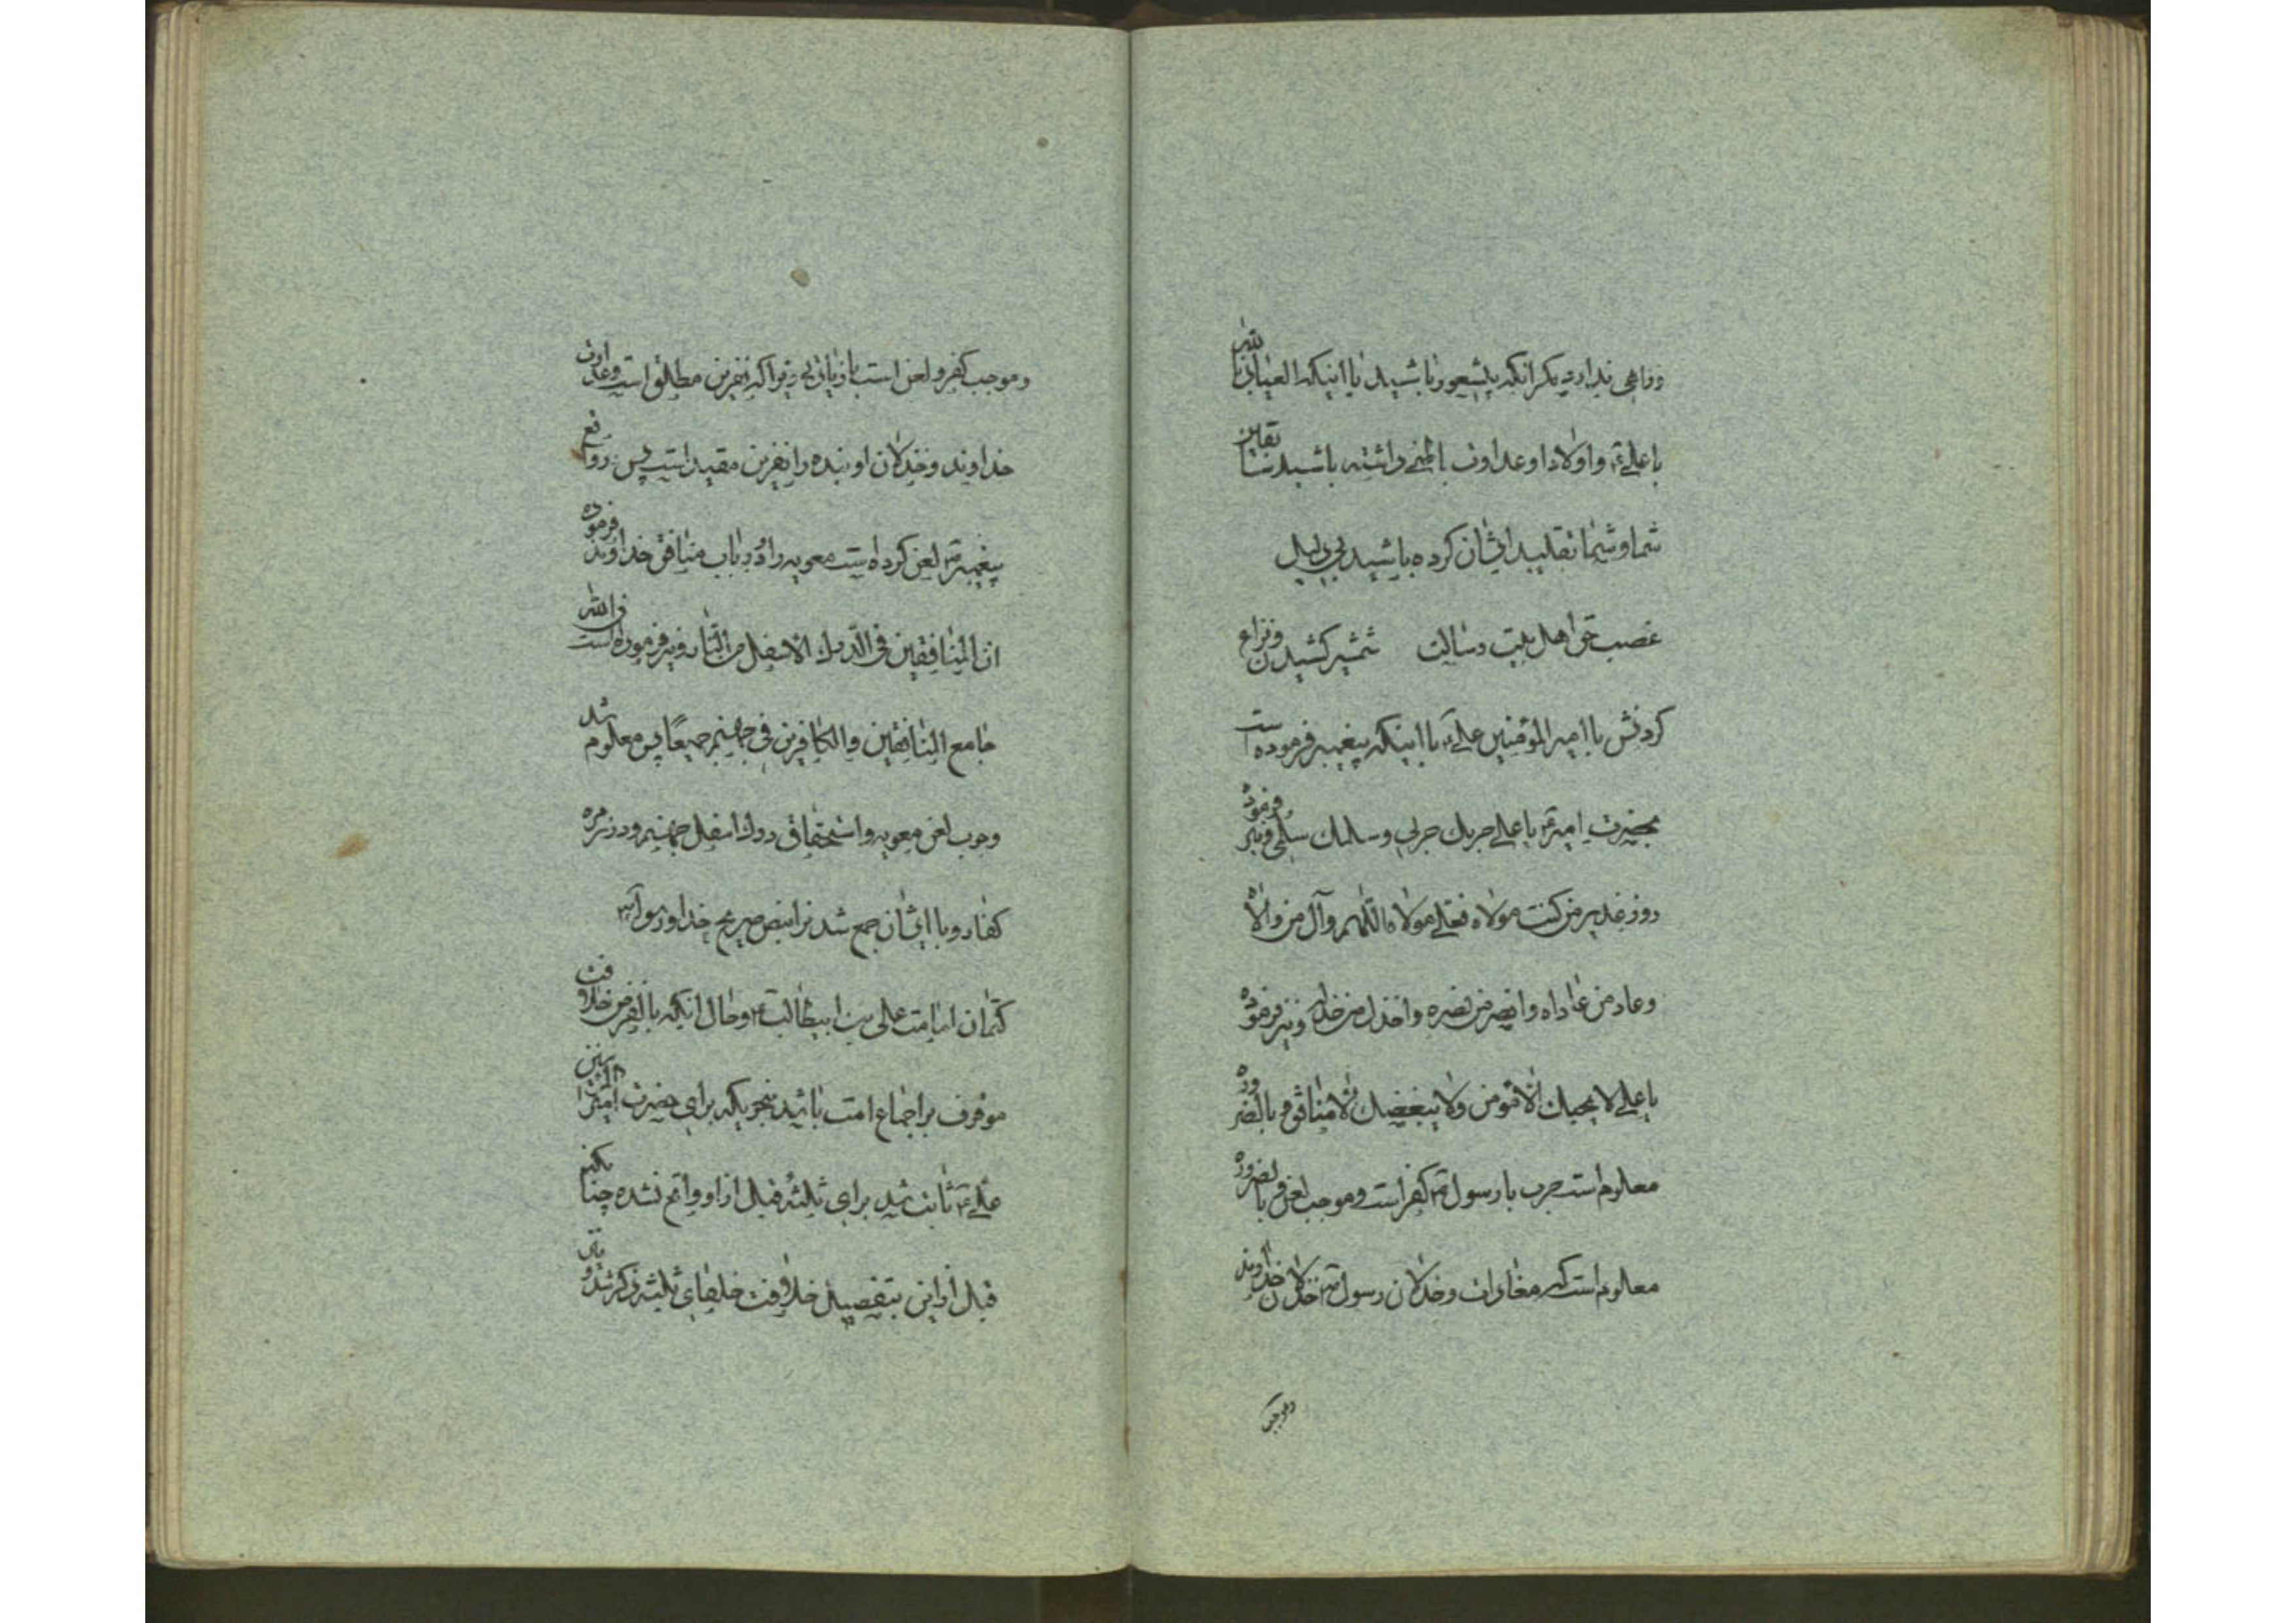 وراهی ندارد مگر انکه بیشعور باشید یا اینکه العیاذ بالله
با علی ع و اولاد او عداوت باطنی داشته باشید سابقین
شما و شما تقلید ایشان کرده باشید بی دلیل
غصب حق اهل بیت رسالت شمشیر کشیدن ونزاع
کردنش با امیر المؤمنین علی ع با اینکه پیغمبر فرموده است
بحضرت امیر ع یا علی حربك حربی وسلمك سلمی ونیز فرموده
روز غدیر من کنت مولاه فعلی مولاه اللهم وآل من والاه
وعاد من عاداه وانصر من نصره واخذل من خذله ونیز فرموده
یا علی لا یحبك الا مؤمن ولا یبغضك الا منافق و بالضروره
معلوم است حرب با رسول ص کفر است وموجب لعن و بالضروره
معلوم است که معادات وخذلان رسول ص خذلان خداوند
وموجب
وموجب کفر و لعن است زیرا که نفرین مطلق است وعداوت
خداوند وخذلان او بنده را نفرین مقید است پس در واقع
پیغمبر ص لعن کرده است معویه را و در باب منافق خداوند فرموده
ان المنافقین فی الدرك الاسفل من النار ونیز فرموده است ان الله
جامع المنافقین والکافرین فی جهنم جمیعًا پس معلوم شد
وجوب لعن معویه واستحقاق درك اسفل جهنم ودر زمره
کفار و با ایشان جمع شدنرا بنص صریح خدا ورسول ص
کتمان امامت علی بن ابیطالب ع وحال انکه بالفرض خلافت
موقوف بر اجماع امت باشد بنحویکه برای حضرت امیر المؤمنین
علی ع ثابت شد برای ثلثه قبل از او واقع نشده چنانکه
قبل از این بتفصیل خلافت خلفای ثلثه ذکر شد و